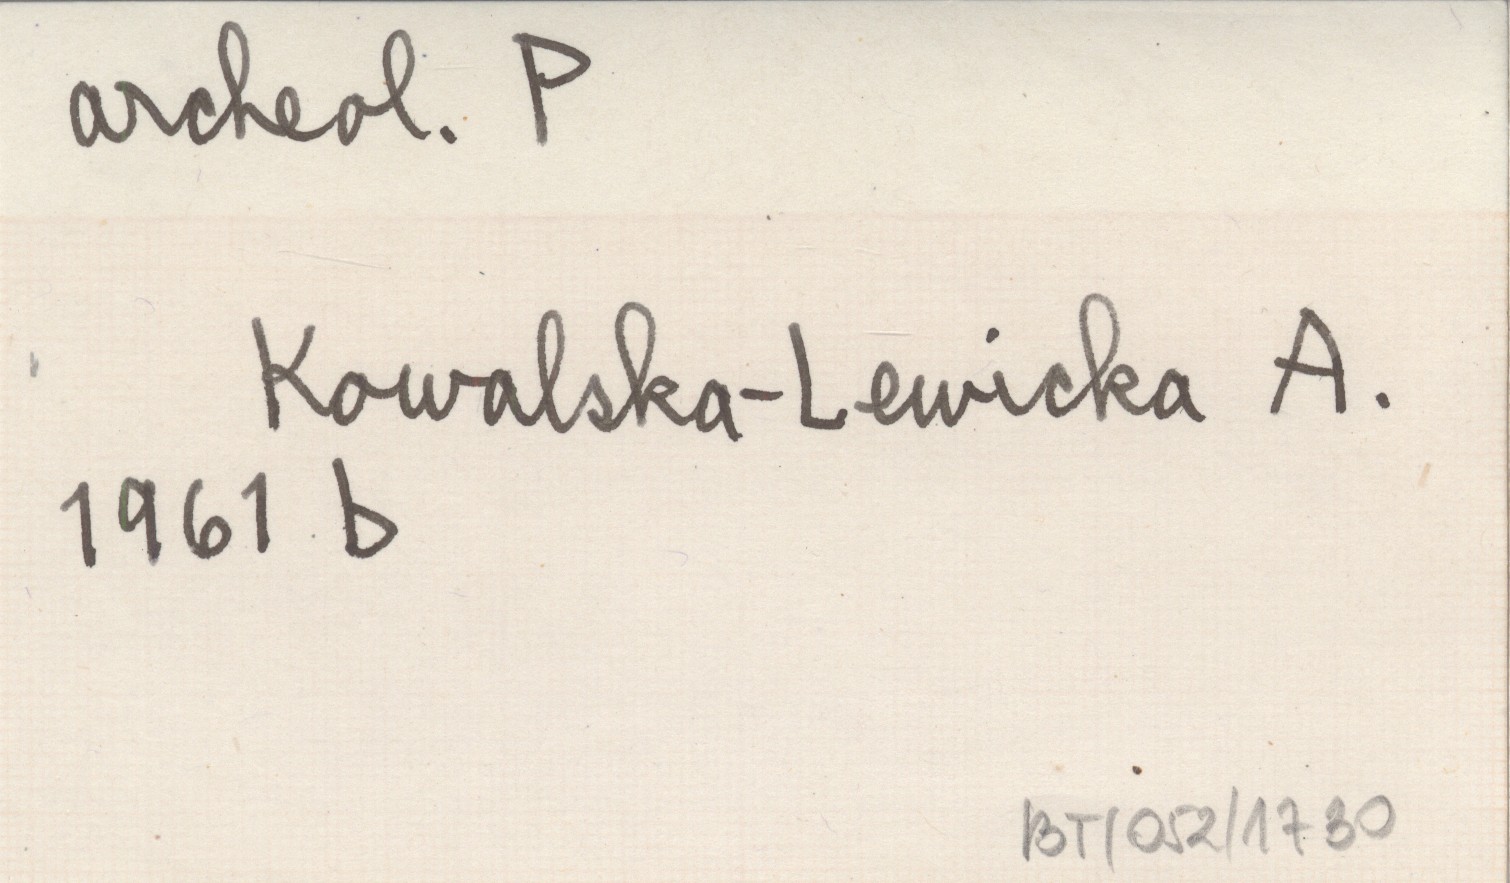 archeol. P
Kowalska-Lewicka A.
1961 b
BT/052/1730